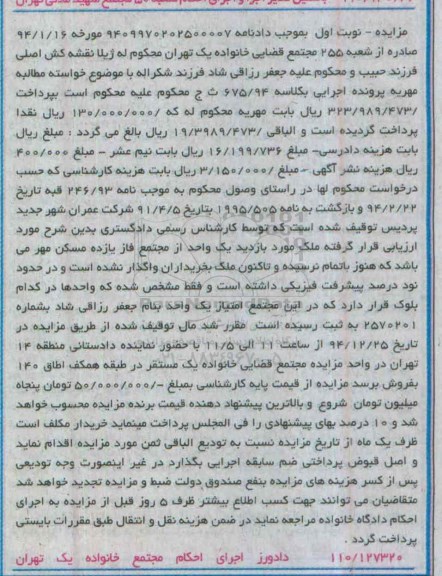 مزایده - نوبت اول بموجب دادنامه ۹۴۰۹۹۷۰۲۰۲۵۰۰۰۰۷ مورخه ۹۴/۱/۱۶
صادره از شعبه ۲۵۵ مجتمع قضایی خانواده یک تهران محکوم له ژیلا نقشه کش اصلی
فرزند حبیب و محکوم علیه جعفر رزاقی شاد فرزند شکراله با موضوع خواسته مطالبه
مهریه پرونده اجرایی بکلاسه ۶۷۵/۹۴ ث ج محکوم علیه محکوم است بپرداخت
/۳۲۳/۹۸۹/۴۷۳ ریال بابت مهریه محکوم له که /۱۳۰/۰۰۰/۰۰۰ ریال نقدا
پرداخت گردیده است و الباقی /۱۹/۳۹۸۹/۴۷۳ ریال بالغ می گردد ؛ مبلغ ریال
بابت هزینه دادرسی- مبلغ ۱۶/۱۹۹/۷۳۶ ریال بابت نیم عشر - مبلغ ۴۰۰/۰۰۰
ریال هزینه نشر آگهی - مبلغ /۳/۱۵۰/۰۰۰ ریال بابت هزینه کارشناسی که حسب
درخواست محکوم لها در راستای وصول محکوم به موجب نامه ۲۴۶/۹۳ قبه تاریخ
۹۴/۲/۲۲ و بازگشت به نامه ۱۹۹۵/۵۰۵ بتاریخ ۹۱/۴/۵ شرکت عمران شهر جدید
پردیس توقیف شده است که توسط کارشناس رسمی دادگستری بدین شرح مورد
ارزیابی قرار گرفته ملک مورد بازدید یک واحد از مجتمع فاز یازده مسکن مهر می
باشد که هنوز باتمام نرسیده و تاکنون ملک بخریداران واگذار نشده است و در حدود
نود درصد پیشرفت فیزیکی داشته است و فقط مشخص شده که واحدها در کدام
بلوک قرار دارد که در این مجتمع امتیاز یک واحد بنام جعفر رزاقی شاد بشماره
۲۵۷۰۲۰۱ به ثبت رسیده است مقرر شد مال توقیف شده از طریق مزایده در
تاریخ ۹۴/۱۲/۲۵ از ساعت ۱۱ الی ۱۱/۵ با حضور نماینده دادستانی منطقه ۱۴
تهران در واحد مزایده مجتمع قضایی خانواده یک مستقر در طبقه همکف اطاق ۱۴۰
بفروش برسد مزایده از قیمت پایه کارشناسی بمبلغ -/۵۰/۰۰۰/۰۰۰ تومان پنجاه
میلیون تومان شروع و بالاترین پیشنهاد دهنده قیمت برنده مزایده محسوب خواهد
شد و ۱۰ درصد بهای پیشنهادی را فی المجلس پرداخت مینماید خریدار مکلف است
ظرف یک ماه از تاریخ مزایده نسبت به تودیع الباقی ثمن مورد مزایده اقدام نماید
و اصل قبوض پرداختی ضم سابقه اجرایی بگذارد در غیر اینصورت وجه تودیعی
پس از کسر هزینه های مزایده بنفع صندوق دولت ضبط و مزایده تجدید خواهد شد
متقاضیان می توانند جهت کسب اطلاع بیشتر ظرف ۵ روز قبل از مزایده به اجرای
احکام دادگاه خانواده مراجعه نماید در ضمن هزینه نقل و انتقال طبق مقررات بایستی
پرداخت گردد .
۱۱۰/۱۲۷۳۲۰ دادورز اجرای احکام مجتمع خانواده یک تهران